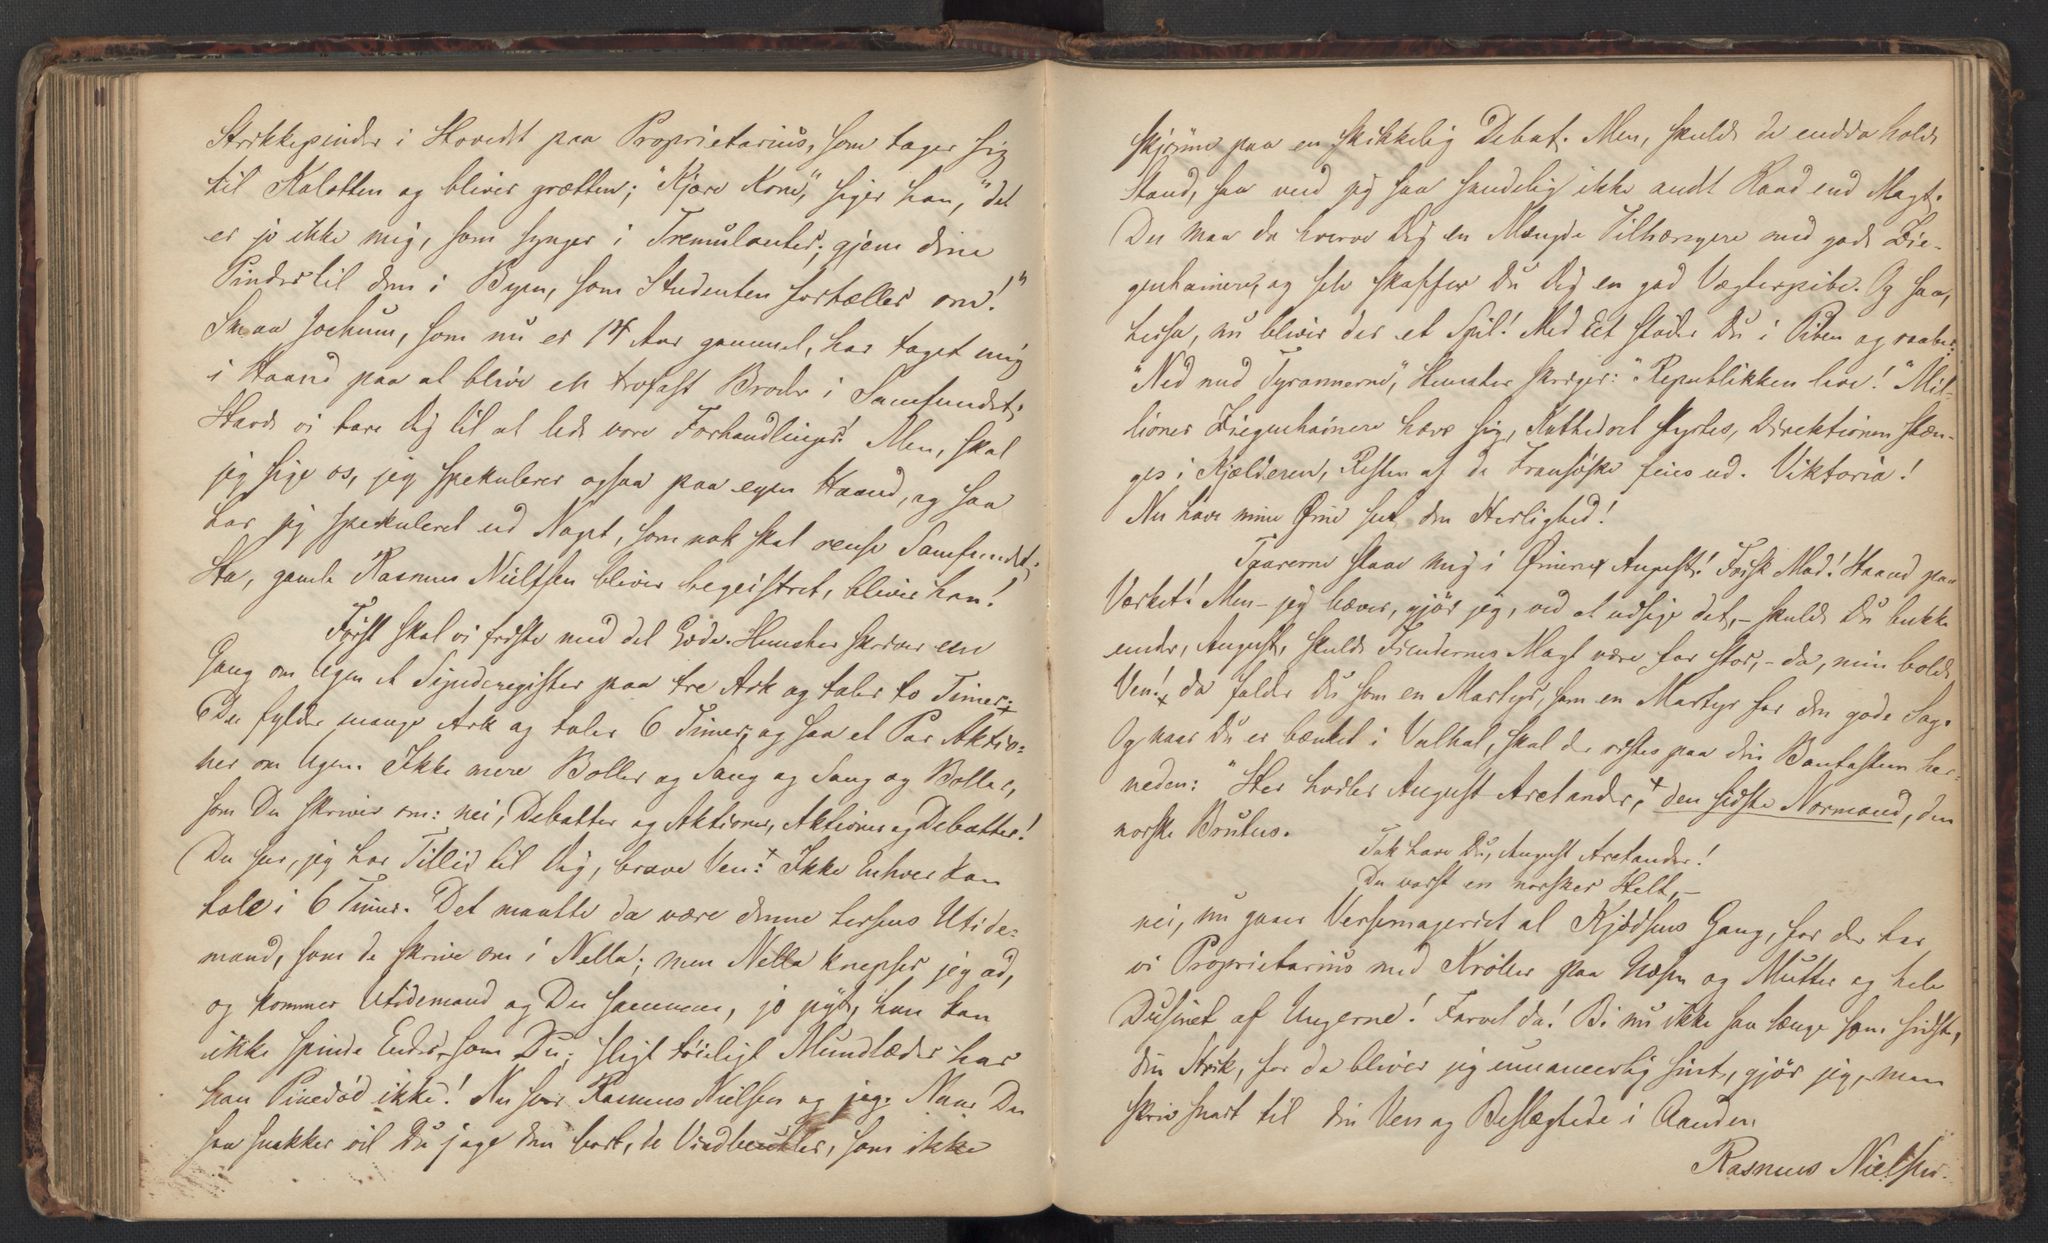 Strikkepinder i Hovedet paa Proprietarius, som tager sig
til Kalotten og bliver grætten; "Kjære Kone," siger han, "det
er jo ikke mig, som synger i Tremulanter; gjem dine
Pinder til dem i Byen, som Studenten fortæller om!"
Smaa Jochum, som nu er 14 Aar gammel, har taget mig
i Haand paa at blive en trofast Broder i Samfundet;
Havde vi bare Dig til at lede vore Forhandlinger! Men, skal
jeg sige os, jeg spekulerer ogsaa paa egen Haand, og saa
har jeg spekuleret ud Noget, som nok skal rense Samfundet;
Ha, gamle Rasmus Nielsen bliver begeistret, bliver han!
Først skal vi friste med det Gode. Henster skriver en
Gang om Ugen et Synderegister paa tre Ark og taler to Timer;
Du fylder mange Ark og taler 6 Timer; og saa et Par Aktio-
ner om Ugen. Ikke mere Boller og Sang og Sang og Boller,
som Du skriver om: nei, Debatter og Aktioner, Aktioner og Debatter!
Du ser, jeg har Tillid til Dig, brave Ven: Ikke Enhver kan
tale i 6 Timer. Det maatte da være denne hersens Utide-
mand, som de skrive om i Nella; men Nella knepser jeg ad,
og kommer Utidemand og Du sammen, jo pyt, han kan
ikke spinde Ender, som Du; sligt føieligt Mundlæder har
han Pinedød ikke! Nu ser Rasmus Nielsen og jeg. Naar Du
saa snakker vil Du jage dem bort, de Vindbeutler, som ikke
skjønne paa en skikkelig Debat. Men, skulde de endda holde
Stand, saa veed jeg saa sandelig ikke andt Raad end Magt.
Du maa da hverve Dig en Mængde Tilhængere med gode Zie-
genhainere, og selv skaffer Du Dig en god Vægterpibe. Og saa,
hersa, nu bliver der et Spil! Med Eet støder Du i Piben og raaber:
"Ned med Tyrannerne," Henster skriger: "Republikken leve!" Mil-
lioner Ziegenhainere hæve sig, Kathedret styrtes, Direktionen stæn-
ges i Kjælderen, Resten af de Fransøske feies ud. Viktoria!
Nu have mine Øine seet den Herlighed!
Taarerne staae mig i Øinene, August! Frisk Mod! Haand paa
Værket! Men – jeg bæver, gjør jeg, ved at udsige det, – skulde Du bukke
under, August, skulde Fiendernes Magt være for stor, – da, min bolde
Ven! da falder Du som en Martyr, som en Martyr for den gode Sag.
Og naar Du er bænket i Valhal, skal der ristes paa din Bautasten her-
neden: "Her hviler August Aretander, den sidste Normand, den
norske Brutus.
Tak have Du, August Aretander!
Du varst en norsker Helt, –
nei, nu gaaer Versemageriet al Kjødsens Gang, for der har
vi Proprietarius med Krøller paa Næsen og Mutter og hele
Dusinet af Ungerne! Farvel da! Bi nu ikke saa længe som sidst,
din Strik, for da bliver jeg umaneerlig sint, gjør jeg, men
skriv snart til din Ven og Beslægtede i Aanden
Rasmus Nielsen.